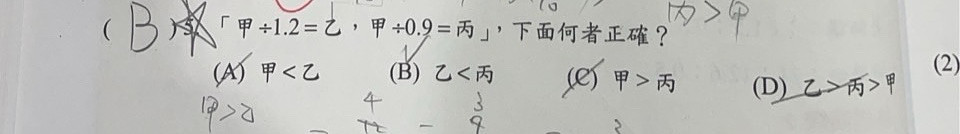 丙>甲
( B ) 「甲÷1.2=乙,甲÷0.9=丙」,下面何者正確?
(A) 甲<乙 (B) 乙<丙 (C) 甲>丙 (D) 乙>丙>甲 (2)
甲>乙 4 3
12 - 9